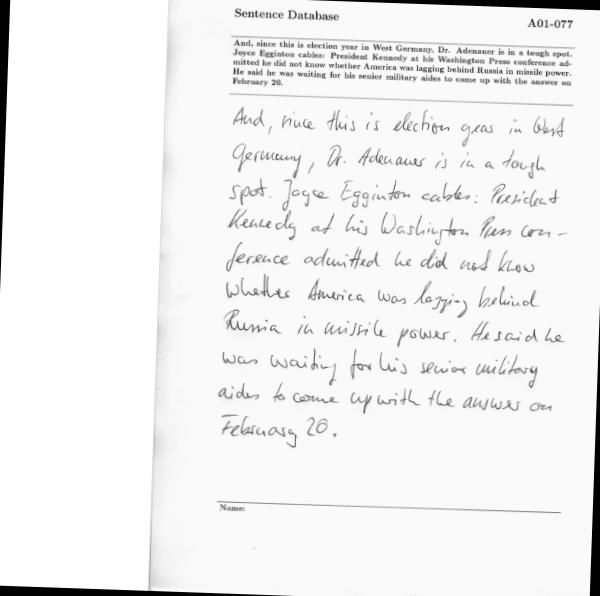 Sentence Database
A01-077
And, since this is election year in West Germany, Dr. Adenauer is in a tough spot.
Joyce Egginton cables: President Kennedy at his Washington Press conference ad-
mitted he did not know whether America was lagging behind Russia in missile power.
He said he was waiting for his senior military aides to come up with the answer on
February 20.
And, since this is election year in West
Germany, Dr. Adenauer is in a tough
spot. Joyce Egginton cables: President
Kennedy at his Washington Press con-
ference admitted he did not know
whether America was lagging behind
Russia in missile power. He said he
was waiting for his senior military
aides to come up with the answer on
February 20.
Name: